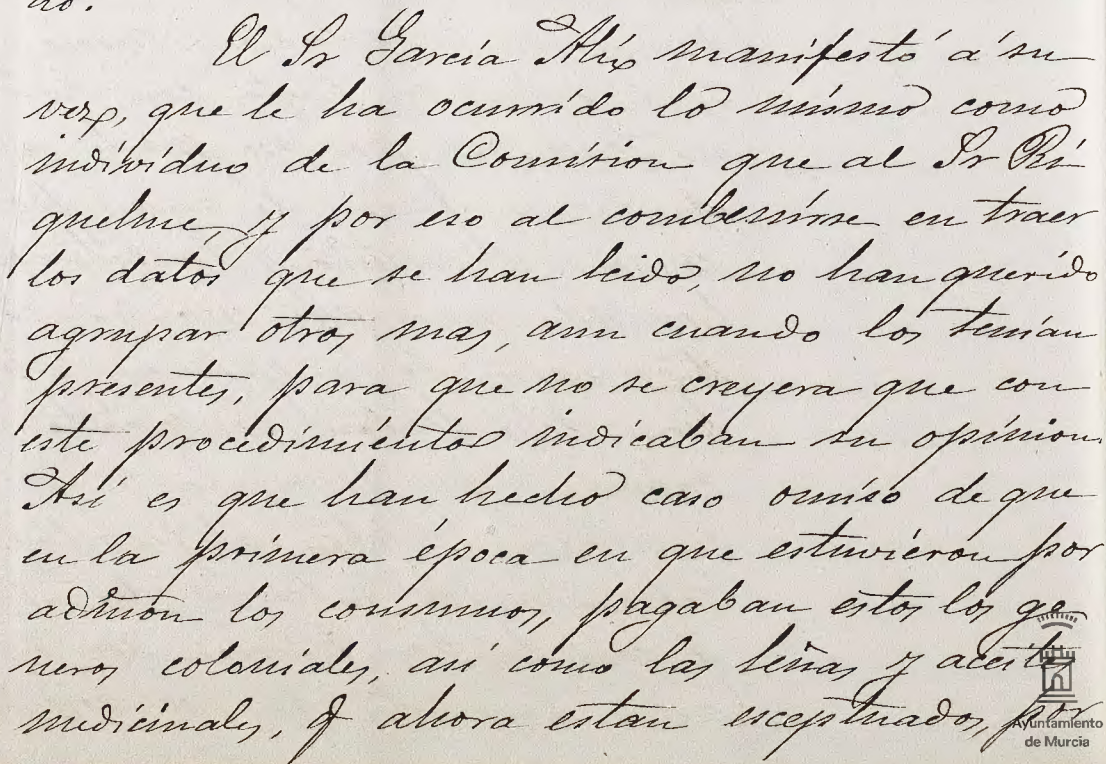 do.
El Sr García Alix manifestó á su
vez, que le ha ocurrido lo mismo como
individuo de la Comision que al Sr Ri
quelme, y por eso al combenirse en traer
los datos que se han leido, no han querido
agrupar otros mas, aun cuando los tenian
presentes, para que no se creyera que con
este procedimiento indicaban su opinion.
Asi es que han hecho caso omiso de que
en la primera época en que estuvieron por
admon los consumos, pagaban estos los ge
neros coloniales, asi como las leñas y aceites
medicinales, q ahora estan esceptuados, por
Ayuntamiento
de Murcia